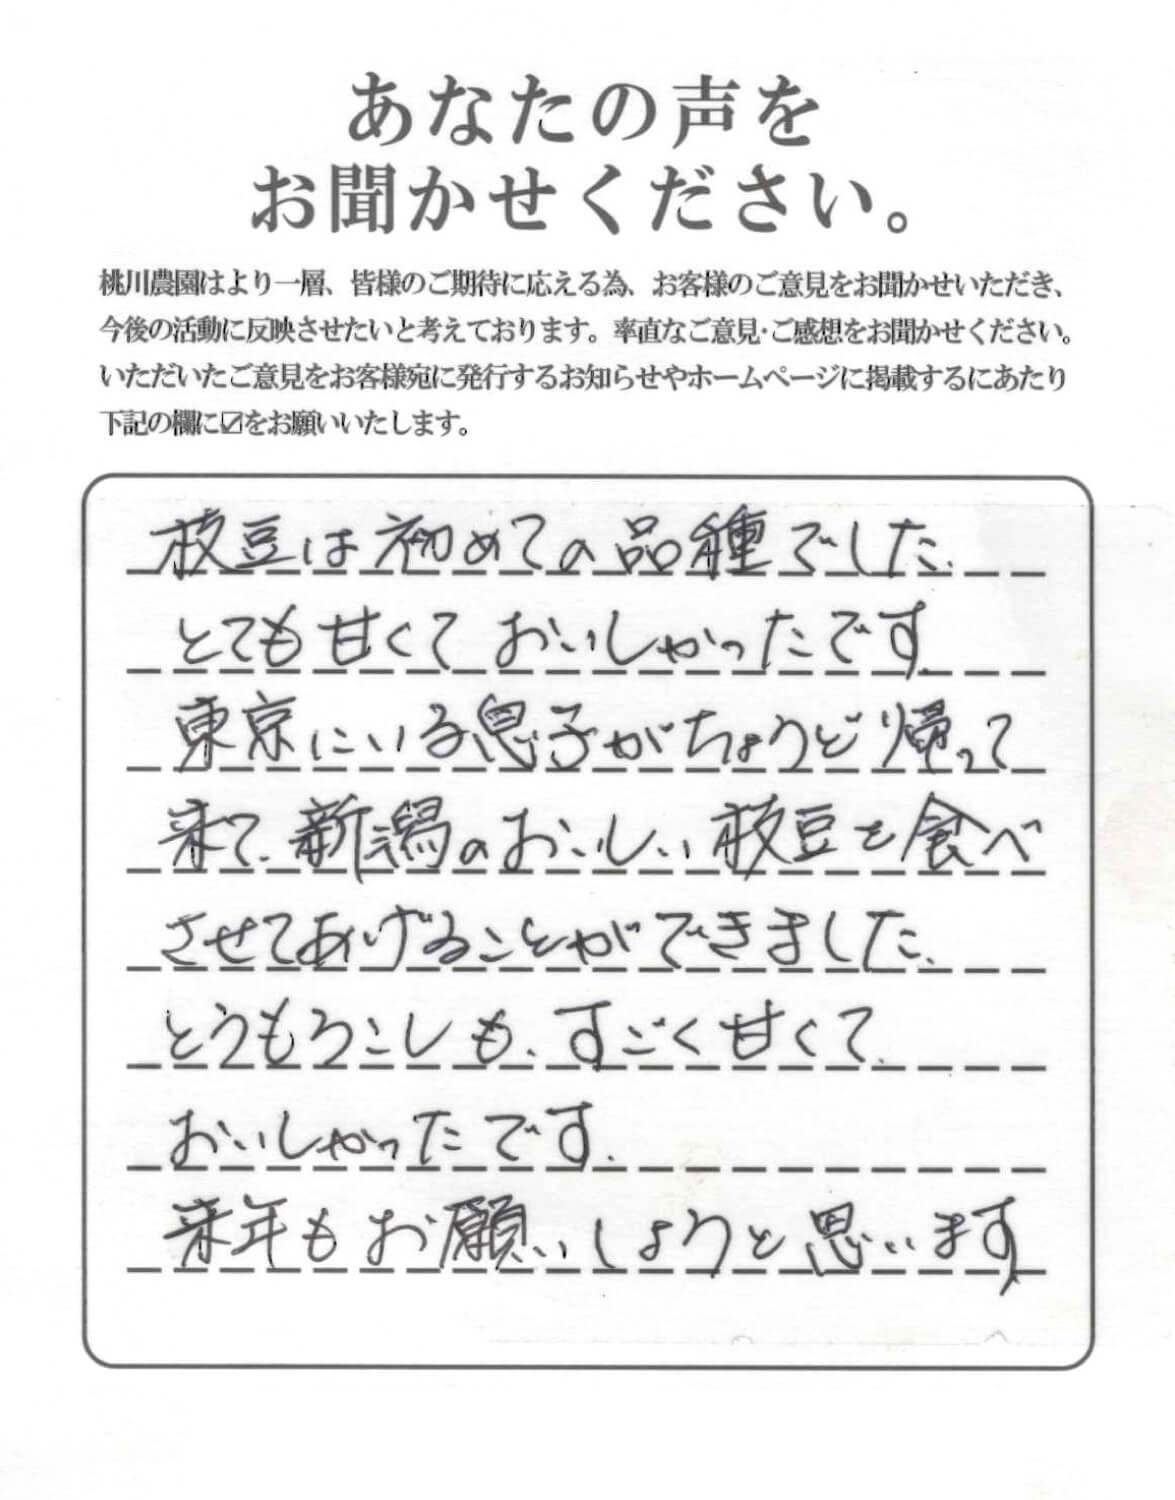 あなたの声を
お聞かせください。
桃川農園はより一層、皆様のご期待に応える為、お客様のご意見をお聞かせいただき、
今後の活動に反映させたいと考えております。率直なご意見・ご感想をお聞かせください。
いただいたご意見をお客様宛に発行するお知らせやホームページに掲載するにあたり
下記の欄に☑をお願いいたします。
枝豆は初めての品種でした。
とても甘くておいしかったです。
東京にいる息子がちょうど帰って
来て、新潟のおいしい枝豆を食べ
させてあげることができました。
とうもろこしも、すごく甘くて、
おいしかったです。
来年もお願いしようと思います